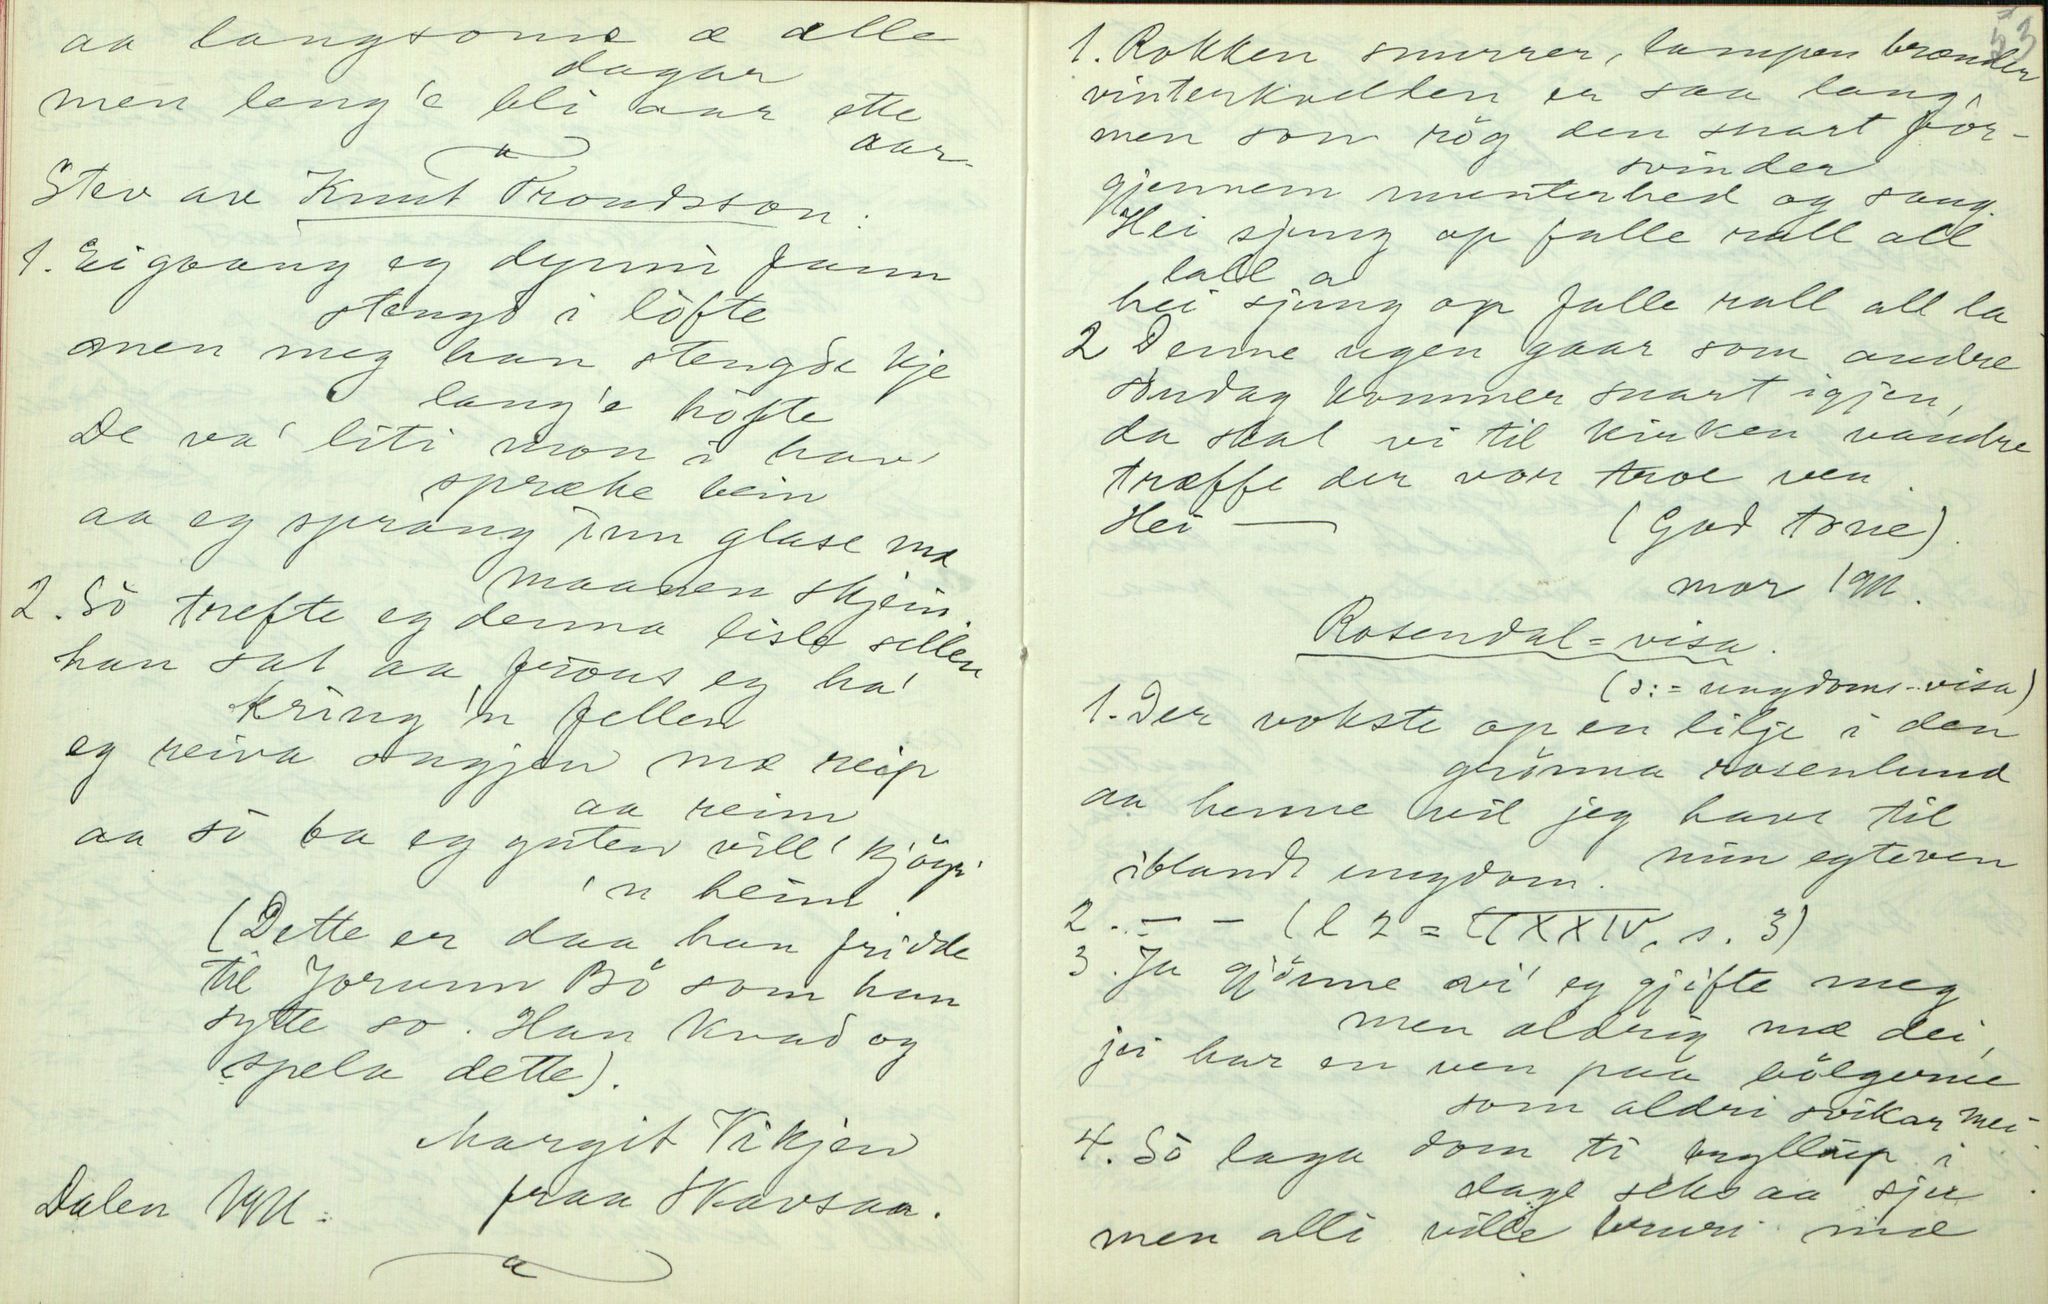 aa langsome æ alle
dagar
men leng'e bli aar ette
aar.
Stev av Knut Trondsson:
1. Ei gaang eg dynni fann
stengd i löfte
men meg han stengde kje
lang'e höfte
De va' liti mon i hav'
spræke bein
aa eg sprang inn glase mæ
maanen skjein.
2. Sö trefte eg denna lisle sillen
han sat aa fraus eg ha'
kring 'n fellen
eg reiva ongjen mæ reip
aa reim
aa sö ba eg guten vill' kjöyr'
'n heim.
(Dette er daa han fridde
til Jorunn Bö som han
sytte so. Han kvad og
spela dette).
Margit Vikjen
Dalen 1911. fraa Skavsaa.
53
1. Rokken snurrer, lampen brænder
vinterkvelden er saa lang,
men som rög den snart for-
svinder
gjennem munterhed og sang.
Hei sjung op falle rall all
lall a
hei sjung op falle rall all la
2 Denne ugen gaar som andre
söndag kommer snart igjen,
da skal vi til kirken vandre
træffe der vor troe ven.
Hei — (God tone).
mor 1911.
Rosendal=visa.
(ɔ: = ungdoms-visa)
1. Der vokste op en lilje i den
grönna rosenlund
aa henne vil jeg have til
min egteven
iblandt ungdom.
2. — — (l 2 = CLXXIV, s. 3)
3. Ja gjönne vi' eg gjifte meg
men aldrig mæ dei,
jei har en ven paa bölgerne
som aldri svikar mei.
4. Sö laga dom ti bryllöip i
dage seks aa sju
men alli ville bruri mæ